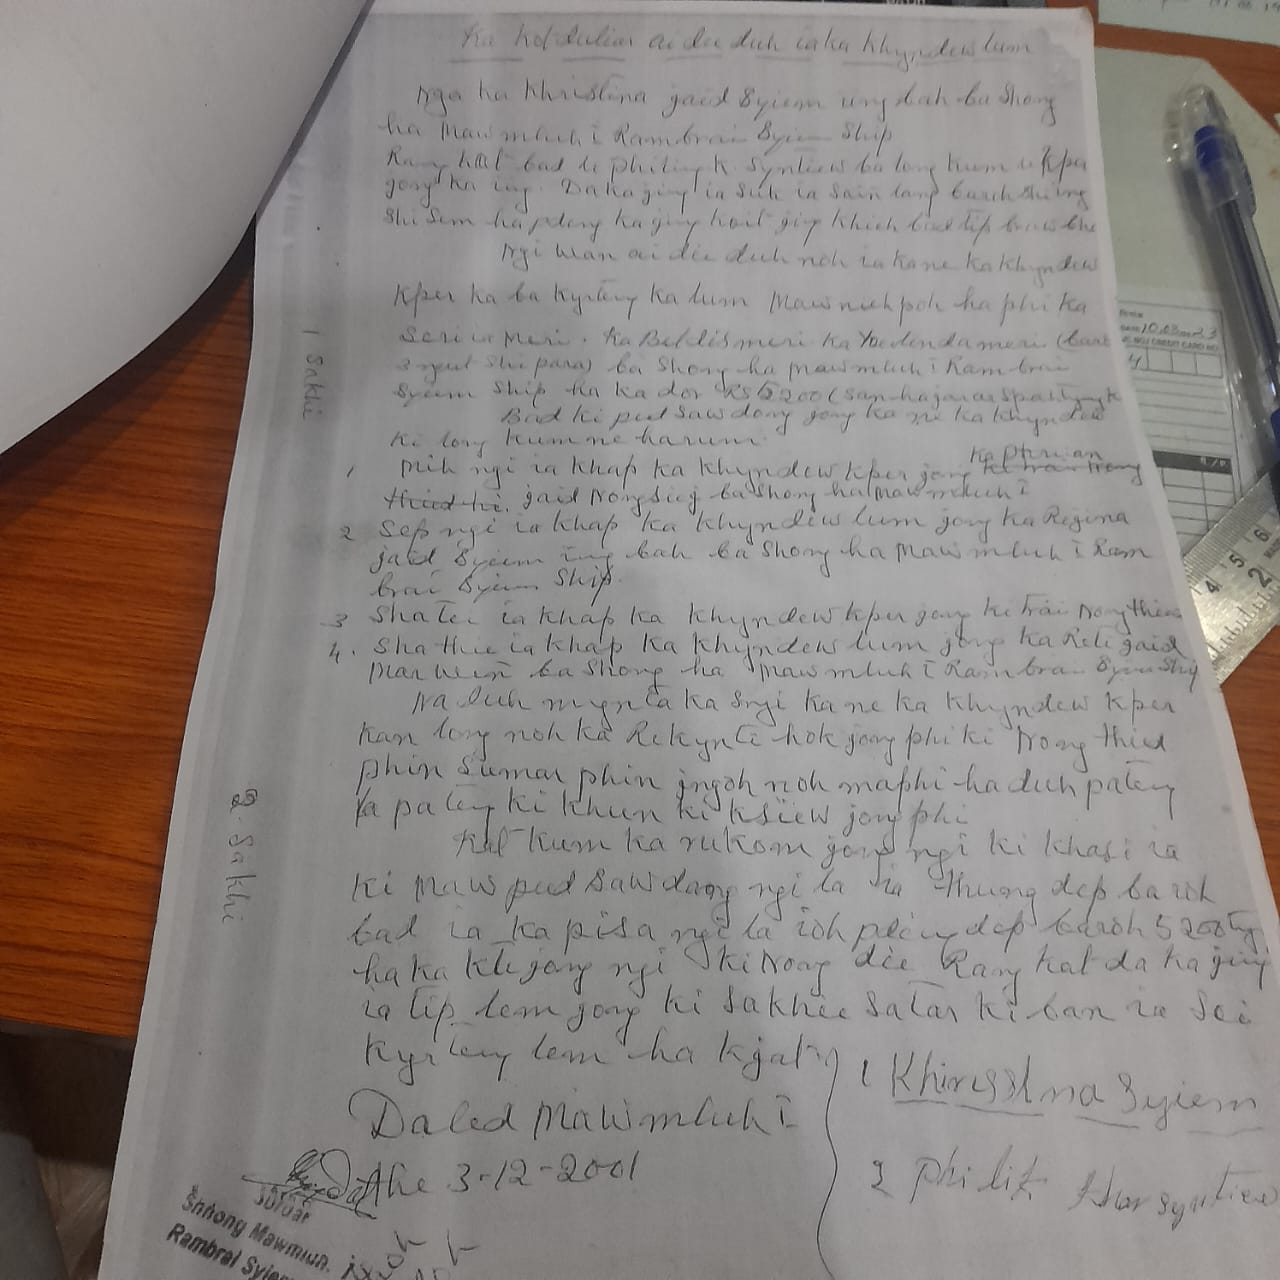 Ka kot dulian ai die duh ia ka khyndew lum
Nga ka Khristina jaid Syiem ing bah ba shong
ha Mawmluh i Rambrai Syiem Ship
Rang kat bad u Philip K. Syntiew ba long kum u kpa
jong ka ing. Da ka jing ia suk ia sain lang baroh shi ing
shi sem ha pdeng ka jing koit jing khiah bad tip briew
Ngi wan ai die duh noh ia kane ka khyndew
kper ka ba kyrteng ka lum Mawniuhpoh ha phi ka
meri. Ka Beldismeri ka meri (baroh
3 ngut shi para) ba shong ha Mawmluh i Rambrai
Syiem Ship ha ka dor Rs 5200 (san hajar ar spah tyngka
Bad ki pud sawdong jong ka ne ka khyndew
ki long kumne harum.
1, Mih ngi ia khap ka khyndew kper jong ka
jaid Nongsiej ba shong ha Mawmluh i
2 Sep ngi ia khap ka khyndew lum jong ka Regina
jaid Syiem ing bah ba shong ha Mawmluh i Ram
brai Syiem Ship.
3 Shatei ia khap ka khyndew kper jong ki trai nongthied
4. Shathie ia khap ka khyndew lum jong ka Reli jaid
Marwein ba shong ha Mawmluh i Rambrai Syiem Ship
Naduh mynta ka sngi kane ka khyndew kper
kan long noh ka Rekynti hok jong phi ki Nongthied
phin sumar phin ingoh noh maphi haduh pateng
la pateng ki khun ki ksiew jong phi
Kat kum ka rukom jong ngi ki khasi ia
ki maw pud sawdong ngi la ia thung dep baroh
bad ia ka pisa ngi la ioh pdiang dep baroh 5200 tyng
ha ka kti jong ngi ki Nong die Rang kat da ka jing
ia tip lem jong ki sakhi satar ki ban ia soi
kyrteng lem ha kjat
Daled Mawmluh i
the 3-12-2001
1 Khiresstina Syiem
2 Philip Khar syntiew
1 Sakhi
2. Sakhi
Sordar
Shnong Mawmluh.
Rambrai Syiem